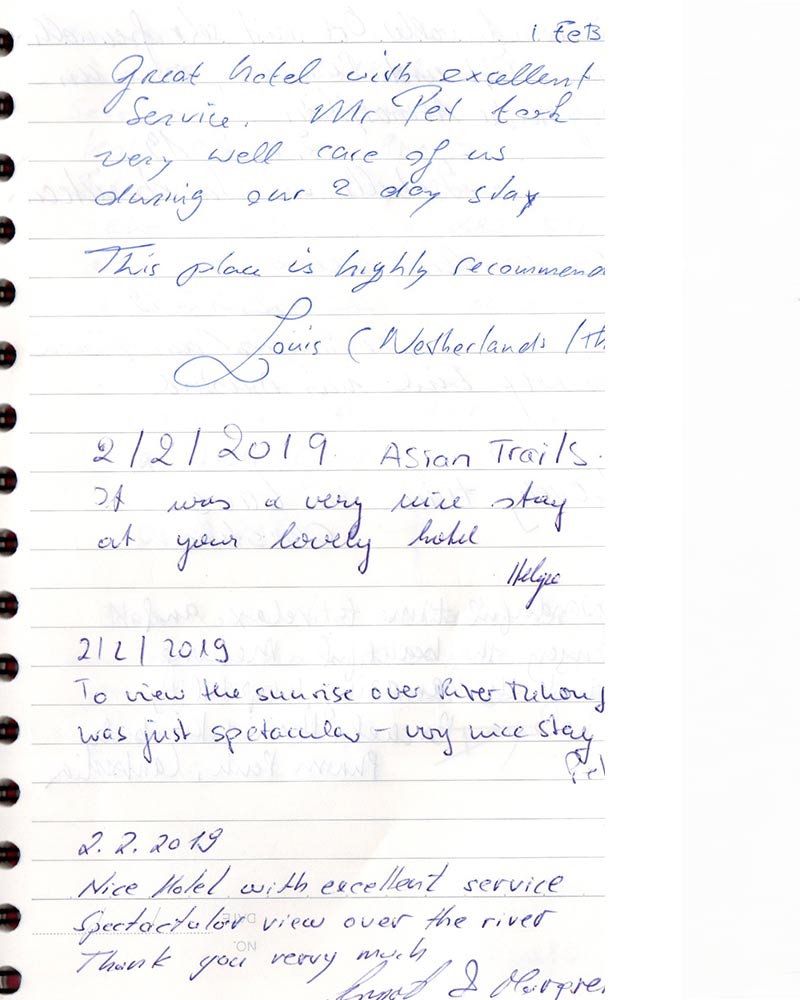 1 FEB
Great hotel with excellent
Service. Mr Pet took
very well care of us
during our 2 day stay
This place is highly recommend
Louis (Netherlands / Th
2/2/2019 Asian Trails.
It was a very nice stay
at your lovely hotel
Helga
2/2/2019
To view the sunrise over River Mekong
was just spetacular - very nice stay
2.2.2019
Nice Hotel with excellent service
Spectactular view over the river
Thank you verry much